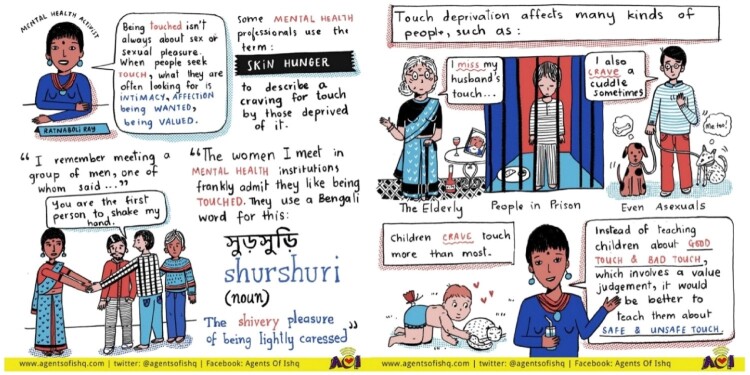 MENTAL HEALTH ACTIVIST
Being touched isn't
always about sex or
sexual pleasure.
When people seek
TOUCH, what they are
often looking for is
INTIMACY, AFFECTION
being WANTED,
being VALUED.
RATNABOLI RAY
Some MENTAL HEALTH
professionals use the
term:
SKIN HUNGER
to describe a
craving for touch
by those deprived
of it.
"I remember meeting a
group of men, one of
whom said..."
You are the first
person to shake my
hand.
"The women I meet in
MENTAL HEALTH institutions
frankly admit they like being
TOUCHED. They use a Bengali
word for this:
সুড়সুড়ি
shurshuri
(noun)
The shivery pleasure
of being lightly caressed"
www.agentsofishq.com | twitter: @agentsofishq | Facebook: Agents Of Ishq
AOI
Touch deprivation affects many kinds of
people, such as:
I miss my
husband's
touch...
I also
CRAVE a
cuddle
sometimes
Me too!
The Elderly
People in Prison
Even Asexuals
Children CRAVE touch
more than most.
Instead of teaching
children about GOOD
TOUCH & BAD TOUCH,
which involves a value
judgement, it would
be better to
teach them about
SAFE & UNSAFE TOUCH.
www.agentsofishq.com | twitter: @agentsofishq | Facebook: Agents Of Ishq
AOI